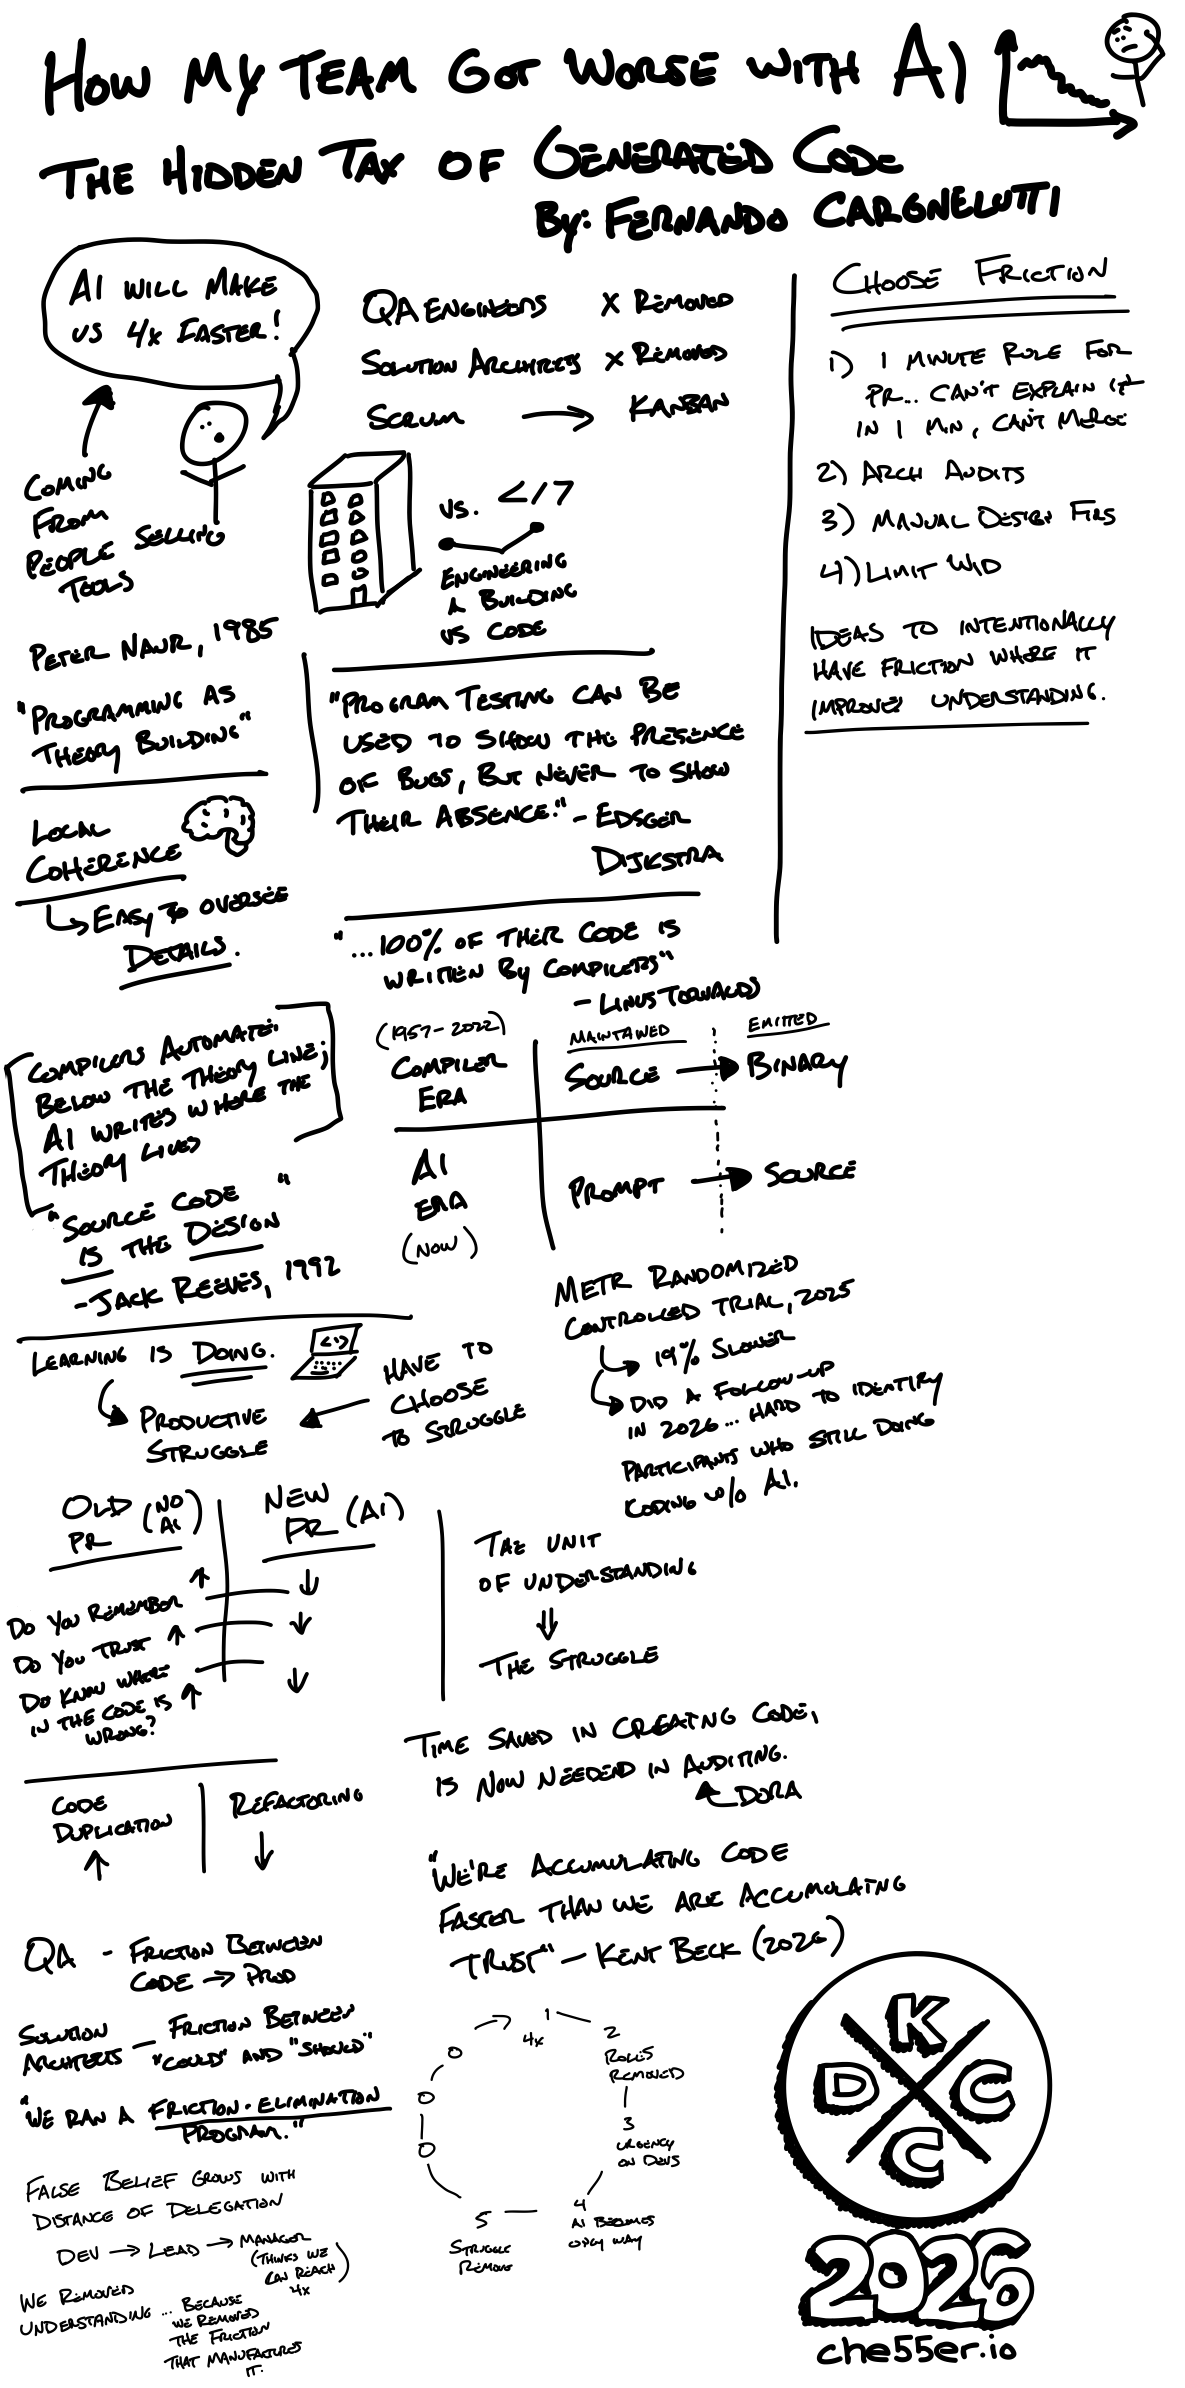 HOW MY TEAM GOT WORSE WITH AI
THE HIDDEN TAX OF GENERATED CODE
BY: FERNANDO CARGNELUTTI
AI WILL MAKE
US 4X FASTER!
COMING
FROM
PEOPLE SELLING
TOOLS
QA ENGINEERS X REMOVED
SOLUTION ARCHITECTS X REMOVED
SCRUM → KANBAN
VS. </7
ENGINEERING
A BUILDING
VS CODE
CHOOSE FRICTION
1) 1 MINUTE RULE FOR
PR... CAN'T EXPLAIN IT
IN 1 MIN, CAN'T MERGE
2) ARCH AUDITS
3) MANUAL DESIGN FIRS
4) LIMIT WID
IDEAS TO INTENTIONALLY
HAVE FRICTION WHERE IT
IMPROVES UNDERSTANDING.
PETER NAUR, 1985
"PROGRAMMING AS
THEORY BUILDING"
LOCAL
COHERENCE
EASY TO OVERSEE
DETAILS.
"PROGRAM TESTING CAN BE
USED TO SHOW THE PRESENCE
OF BUGS, BUT NEVER TO SHOW
THEIR ABSENCE." - EDSGER
DIJKSTRA
"...100% OF THEIR CODE IS
WRITTEN BY COMPILERS"
- LINUS TORVALDS
COMPILERS AUTOMATE
BELOW THE THEORY LINE;
AI WRITES WHERE THE
THEORY LIVES
"SOURCE CODE "
IS THE DESIGN
- JACK REEVES, 1992
(1957-2022)
COMPILER
ERA
MAINTAINED
EMITTED
SOURCE → BINARY
AI
ERA
(NOW)
PROMPT → SOURCE
LEARNING IS DOING.
PRODUCTIVE
STRUGGLE
HAVE TO
CHOOSE
TO STRUGGLE
METR RANDOMIZED
CONTROLLED TRIAL, 2025
19% SLOWER
DID A FOLLOW-UP
IN 2026... HARD TO IDENTIFY
PARTICIPANTS WHO STILL DOING
CODING W/O AI.
OLD (NO
PR AI)
NEW
PR (AI)
DO YOU REMEMBER ↑ ↓
DO YOU TRUST ↑ ↓
DO KNOW WHERE
IN THE CODE IS ↑ ↓
WRONG?
THE UNIT
OF UNDERSTANDING
⇓
THE STRUGGLE
TIME SAVED IN CREATNG CODE,
IS NOW NEEDEND IN AUDITING.
DORA
CODE
DUPLICATION
↑
REFACTORING
↓
"WE'RE ACCUMULATING CODE
FASTER THAN WE ARE ACCUMULATNG
TRUST" - KENT BECK (2026)
QA - FRICTION BETWEEN
CODE → PROD
SOLUTION
ARCHITECTS - FRICTION BETWEEN
"COULD" AND "SHOULD"
"WE RAN A FRICTION-ELIMINATION
PROGRAM."
FALSE BELIEF GROWS WITH
DISTANCE OF DELEGATION
DEV → LEAD → MANAGER
(THINKS WE
CAN REACH
4X)
WE REMOVED
UNDERSTANDING ... BECAUSE
WE REMOVED
THE FRICTION
THAT MANUFACTURES
IT.
1
4X
2
ROLES
REMOVED
3
URGENCY
ON DEVS
4
AI BECOMES
ONLY WAY
5
STRUGGLE
REMOVE
K
D C
C
2026
che55er.io